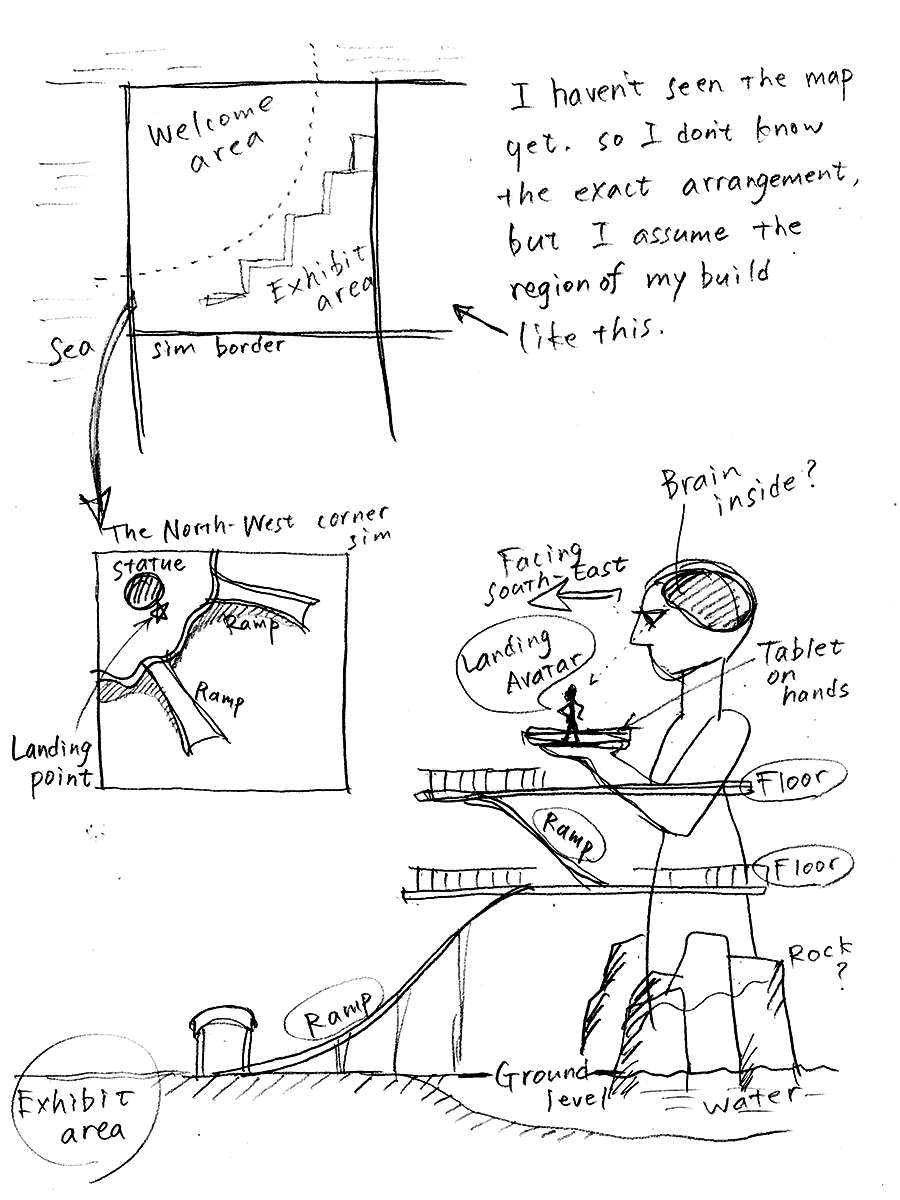 Welcome
area
I haven't seen the map
yet. so I don't know
the exact arrangement,
but I assume the
region of my build
like this.
Exhibit
area
Sea
sim border
The North-West corner
sim
Statue
Ramp
Ramp
Landing
point
Brain
inside?
Facing
South-East
Landing
Avatar
Tablet
on
hands
Floor
Ramp
Floor
Rock
?
Ramp
Ground
level
Water
Exhibit
area